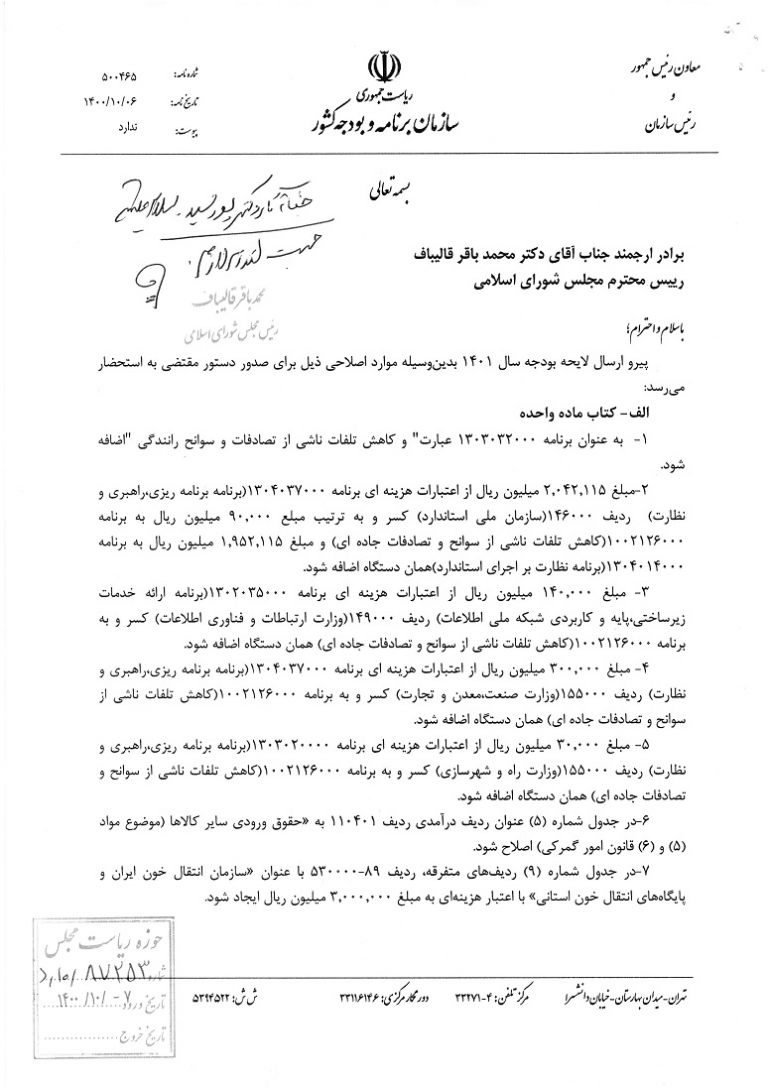 معاون رئیس جمهور
و
رئیس سازمان
ریاست جمهوری
سازمان برنامه و بودجه کشور
شماره نامه: ۵۰۰۴۶۵
تاریخ نامه: ۱۴۰۰/۱۰/۰۶
پیوست: ندارد
بسمه تعالی
جهت اقدام لازم.
محمد باقر قالیباف
رئیس مجلس شورای اسلامی
برادر ارجمند جناب آقای دکتر محمد باقر قالیباف
رییس محترم مجلس شورای اسلامی
باسلام و احترام؛
پیرو ارسال لایحه بودجه سال ۱۴۰۱ بدین‌وسیله موارد اصلاحی ذیل برای صدور دستور مقتضی به استحضار
می‌رسد:
الف- کتاب ماده واحده
۱- به عنوان برنامه ۱۳۰۳۰۳۲۰۰۰ عبارت" و کاهش تلفات ناشی از تصادفات و سوانح رانندگی "اضافه
شود.
۲-مبلغ ۲,۰۴۲,۱۱۵ میلیون ریال از اعتبارات هزینه ای برنامه ۱۳۰۴۰۳۷۰۰۰(برنامه برنامه ریزی،راهبری و
نظارت) ردیف ۱۴۶۰۰۰(سازمان ملی استاندارد) کسر و به ترتیب مبلغ ۹۰,۰۰۰ میلیون ریال به برنامه
۱۰۰۲۱۲۶۰۰۰(کاهش تلفات ناشی از سوانح و تصادفات جاده ای) و مبلغ ۱,۹۵۲,۱۱۵ میلیون ریال به برنامه
۱۳۰۴۰۱۴۰۰۰(برنامه نظارت بر اجرای استاندارد)همان دستگاه اضافه شود.
۳- مبلغ ۱۴۰,۰۰۰ میلیون ریال از اعتبارات هزینه ای برنامه ۱۳۰۲۰۳۵۰۰۰(برنامه ارائه خدمات
زیرساختی،پایه و کاربردی شبکه ملی اطلاعات) ردیف ۱۴۹۰۰۰(وزارت ارتباطات و فناوری اطلاعات) کسر و به
برنامه ۱۰۰۲۱۲۶۰۰۰(کاهش تلفات ناشی از سوانح و تصادفات جاده ای) همان دستگاه اضافه شود.
۴- مبلغ ۳۰۰,۰۰۰ میلیون ریال از اعتبارات هزینه ای برنامه ۱۳۰۴۰۳۷۰۰۰(برنامه برنامه ریزی،راهبری و
نظارت) ردیف ۱۵۵۰۰۰(وزارت صنعت،معدن و تجارت) کسر و به برنامه ۱۰۰۲۱۲۶۰۰۰(کاهش تلفات ناشی از
سوانح و تصادفات جاده ای) همان دستگاه اضافه شود.
۵- مبلغ ۳۰,۰۰۰ میلیون ریال از اعتبارات هزینه ای برنامه ۱۳۰۳۰۲۰۰۰۰(برنامه برنامه ریزی،راهبری و
نظارت) ردیف ۱۵۵۰۰۰(وزارت راه و شهرسازی) کسر و به برنامه ۱۰۰۲۱۲۶۰۰۰(کاهش تلفات ناشی از سوانح و
تصادفات جاده ای) همان دستگاه اضافه شود.
۶-در جدول شماره (۵) عنوان ردیف درآمدی ردیف ۱۱۰۴۰۱ به «حقوق ورودی سایر کالاها (موضوع مواد
(۵) و (۶) قانون امور گمرکی) اصلاح شود.
۷-در جدول شماره (۹) ردیف‌های متفرقه، ردیف ۸۹-۵۳۰۰۰۰ با عنوان «سازمان انتقال خون ایران و
پایگاه‌های انتقال خون استانی» با اعتبار هزینه‌ای به مبلغ ۳,۰۰۰,۰۰۰ میلیون ریال ایجاد شود.
حوزه ریاست مجلس
شماره ۸۷۲۵۳
تاریخ ورود ۷-/۱۰/۱۴۰۰
تاریخ خروج
تهران-میدان بهارستان-خیابان دانشسرا مرکز تلفن: ۴-۳۳۲۷۱ دورنگار مرکزی: ۳۳۱۱۶۱۴۶ ش ش: ۵۳۹۴۵۲۲